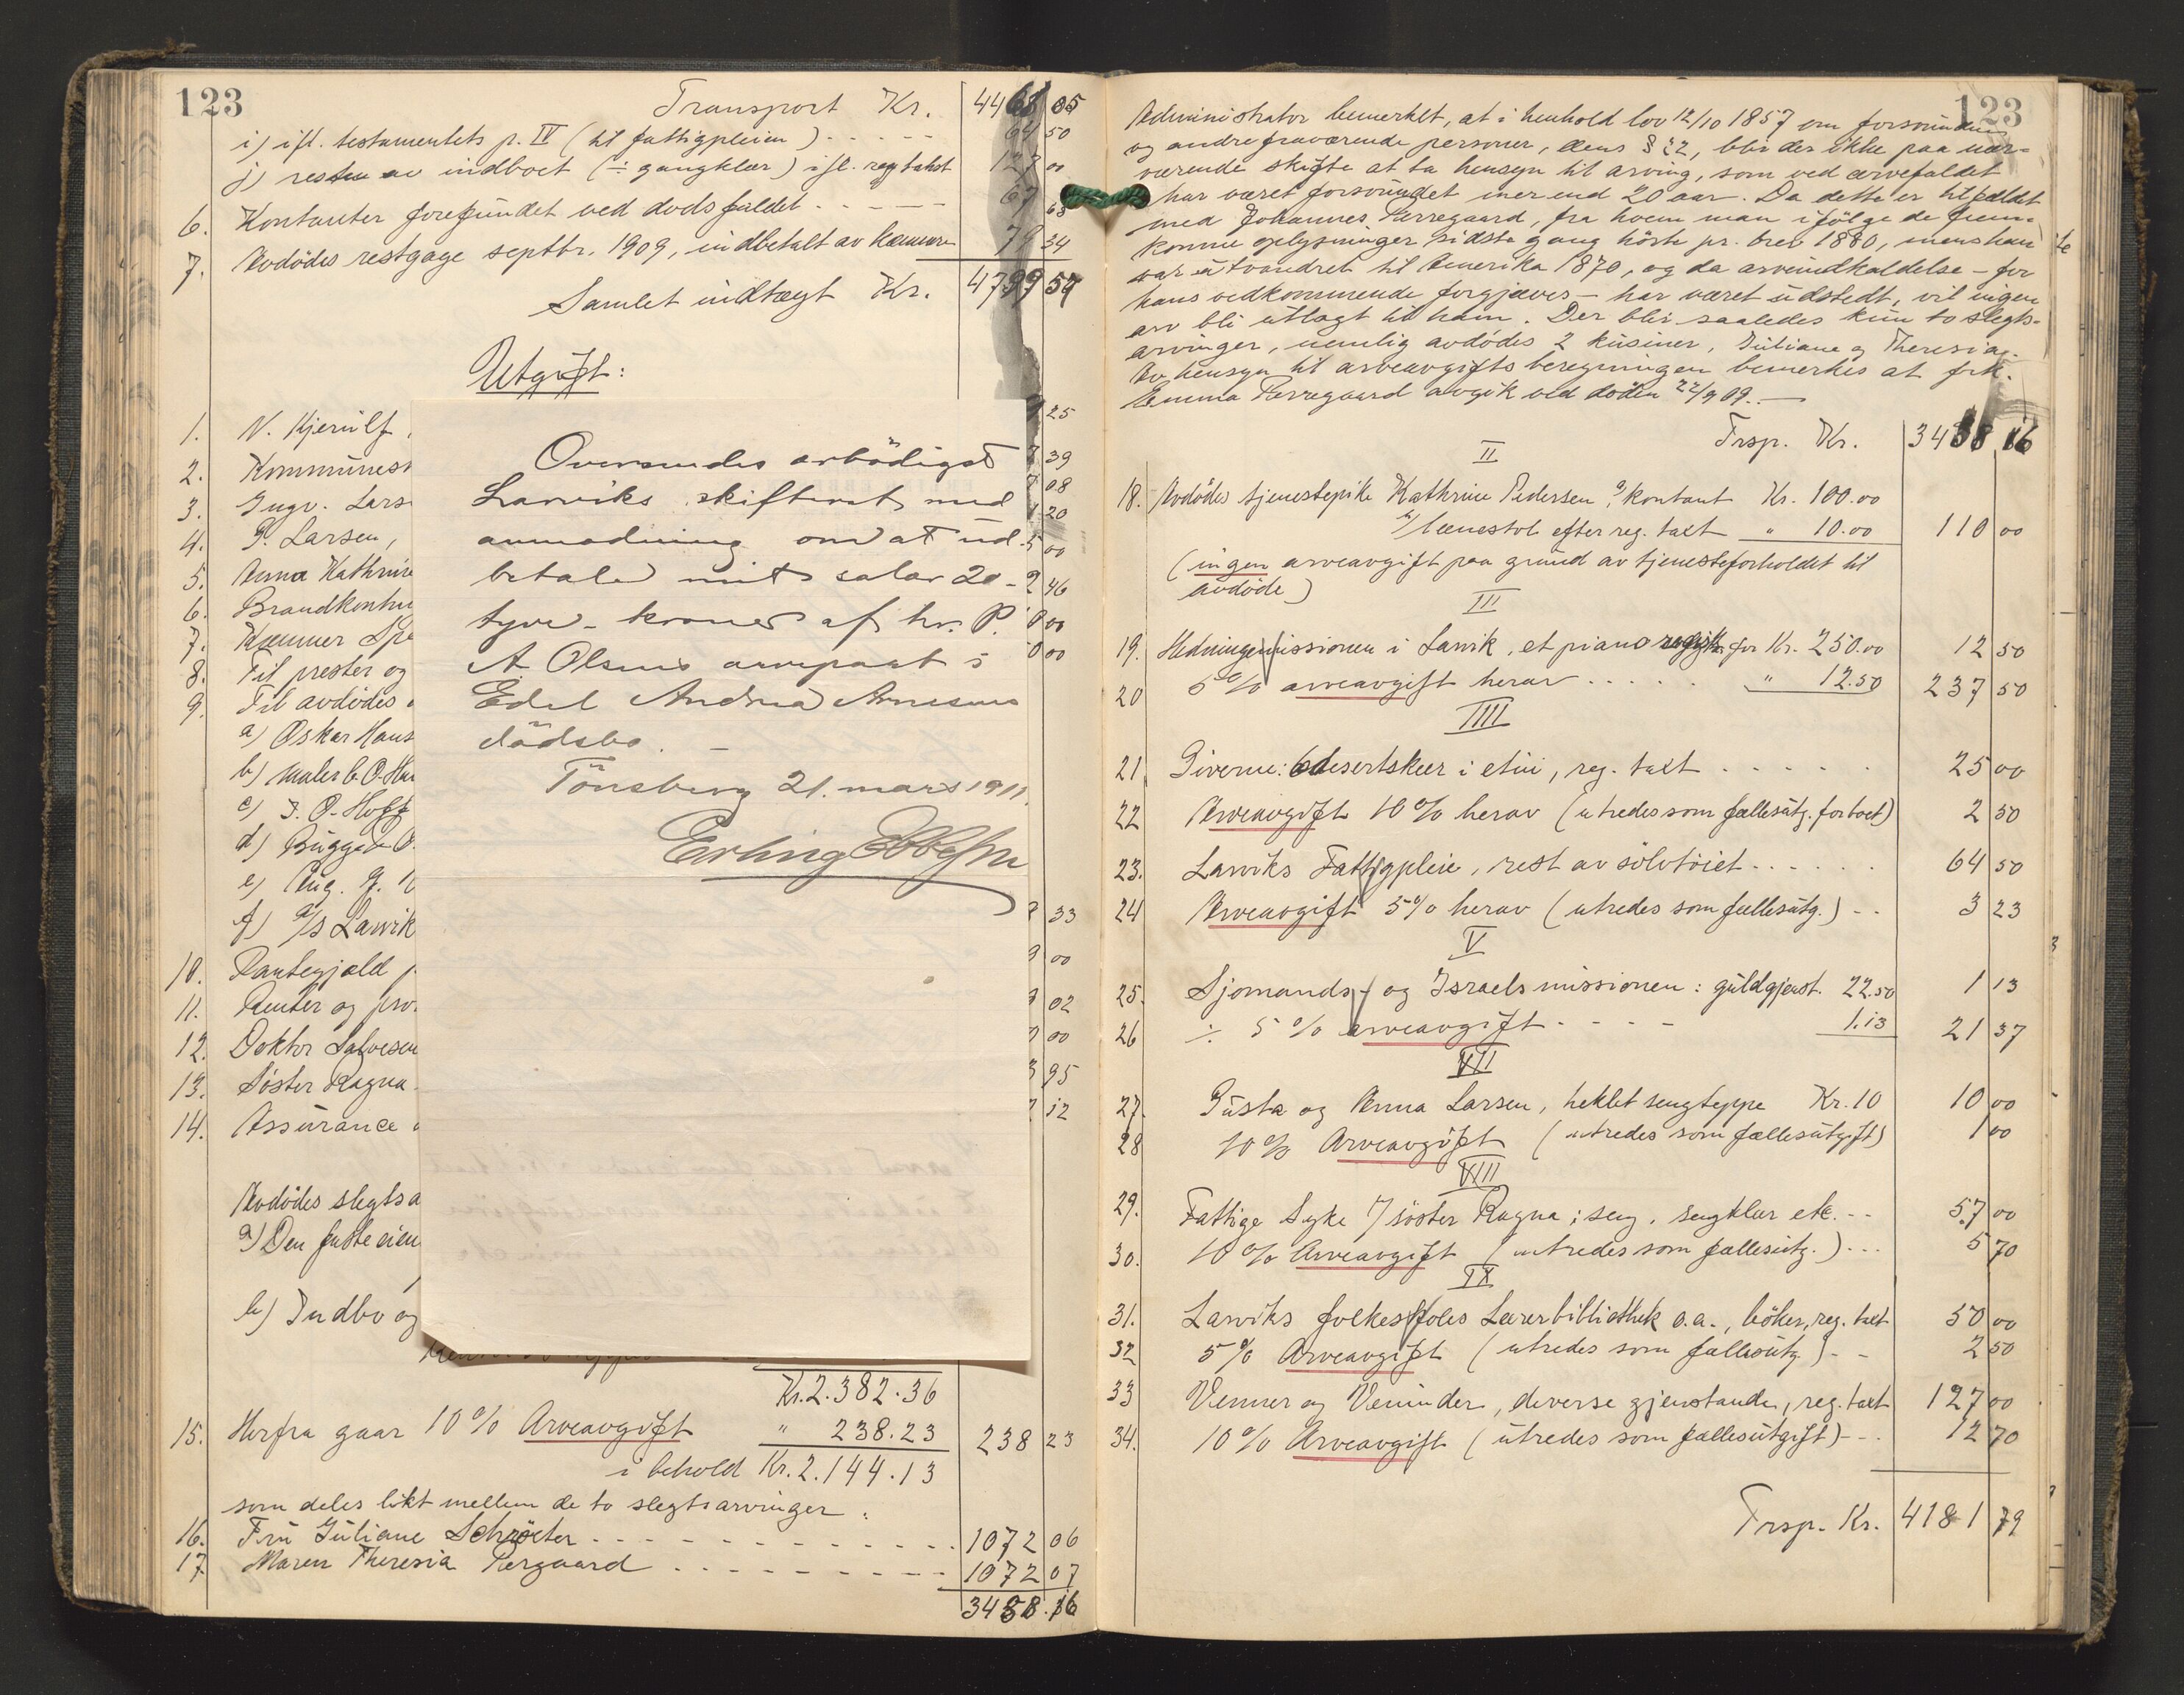 123
Transport Kr. 4468 05
i) ifl. testamentets p. IV (til fattigpleien) - - - - 64 50
j) resten av indboet (÷ gangklær) ifl. reg takst 127 00
6. Kontanter forefundet ved dødsfaldet - - - - - 67 68
7. Avdødes restgage septbr. 1909, indbetalt av kæmner 79 34
Samlet indtægt Kr. 4799 57
Utgift:
1. N. Kjerülf, 25
2. Kommunes 39
3. Ingv. Lars 08
4. P. Larsen, 20
5. Anna Kathrine 00
6. Brandkontin 46
7. Kæmner Spe 00
8. Til prester og 00
9. Til avdødes
a) Oskar Hans
b) Maler C. O. Han
c) J. O. Hoff
d) Bugge & O.
e) Aug. J. N
f) a/s Larvik 33
10. Pantegjæld p 00
11. Renter og pro. 02
12. Doktor Salvesen 00
13. Søster Ragna 95
14. Assurance 12
Avdødes slegtsa
a) Den faste eien
b) Indbo og
Oversendes ærbödigst
Larviks skifteret med
anmodning om at ud-
betale mit salær 20-
tyve- kroner af hr. P.
A. Olsens arvepart i
Edel Andrea Arnesens
dödsbo. -
Tönsberg 21. mars 1911.
Erling Ebbesen
Kr. 2.382.36
15. Herfra gaar 10% Arveavgift " 238.23 238 23
i behold Kr. 2.144.13
som deles likt mellem de to slegtsarvinger:
16. Fru Juliane Schrøter - - - - - - - - - - 1072 06
17. Maren Theresia Pergaard - - - - - - - - - 1072 07
3438.16
123
Administrator bemerket, at i henhold lov 12/10 1857 om forsvundne
og andre fraværende personer, dens § 22, blir der ikke paa nær-
værende skifte at ta hensyn til arving, som ved arvefaldet
har været forsvundet mer end 20 aar. Da dette er tilfældet
med Johannes Pærregaard, fra hvem man ifölge de frem-
komne oplysninger sidste gang hörte pr. brev 1880, mens han
var utvandret til Amerika 1870, og da arveindkaldelse - for
hans vedkommende forgjæves - har været udstedt, vil ingen
arv bli utlagt til ham. Der blir saaledes kun to slegts-
arvinger, nemlig avdødes 2 kusiner, Juliane og Theresia.
Av hensyn til arveavgifts beregningen bemerkes at frk.
Emma Pærregaard avgik ved döden 22/9 09. -
Trsp. Kr. 3438 16
II
18. Avdödes tjenestepike Kathrine Pedersen, a) kontant Kr. 100.00
b) lænestol efter reg. taxt " 10.00 110 00
(ingen arveavgift paa grund av tjenesteforholdet til
avdöde)
III
19. Hedningemissionen i Larvik, et piano for Kr. 250.00 12 50
20 5% arveavgift herav - - - - - " 12.50 237 50
IIII
21. Giverne: 6 desertskeer i etui, reg. taxt - - - - - - 25 00
22 Arveavgift 10% herav (utredes som fællesutg. for boet) 2 50
23. Larviks Fattigpleie, rest av sölvtöiet - - - - - - 64 50
24 Arveavgift 5% herav (utredes som fællesutg.) - - 3 23
V
25. Sjomands- og Israelsmissionen: guldgjenst. 22.50 1 13
26 ÷ 5% arveavgift - - - - 1.13 21 37
VII
27. Gusta og Anna Larsen, heklet sengteppe Kr. 10 10 00
28 10% Arveavgift (utredes som fællesutgift) 1 00
VIII
29. Fattige Syke 7 söster Ragna; seng, sengklær etc. - - 57 00
30. 10% Arveavgift (utredes som fællesutg.) - - - 5 70
IX
31. Larviks folkeskoles Lærerbibliothek o.a., böker, reg. taxt 50 00
32 5% Arveavgift (utredes som fællesutg.) - - 2 50
33 Venner og Veninder, diverse gjenstande, reg. taxt 127 00
34. 10% Arveavgift (utredes som fællesutgift) - - 12 70
Trsp. Kr. 4181 79